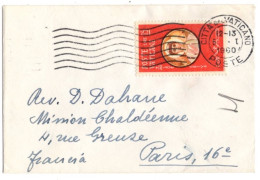 CITTÀ DEL VATICANO
POSTE
12-13
1960
Rev. D. Dahane
Mission Chaldéenne
4, rue Greuze
Paris, 16e
Francia